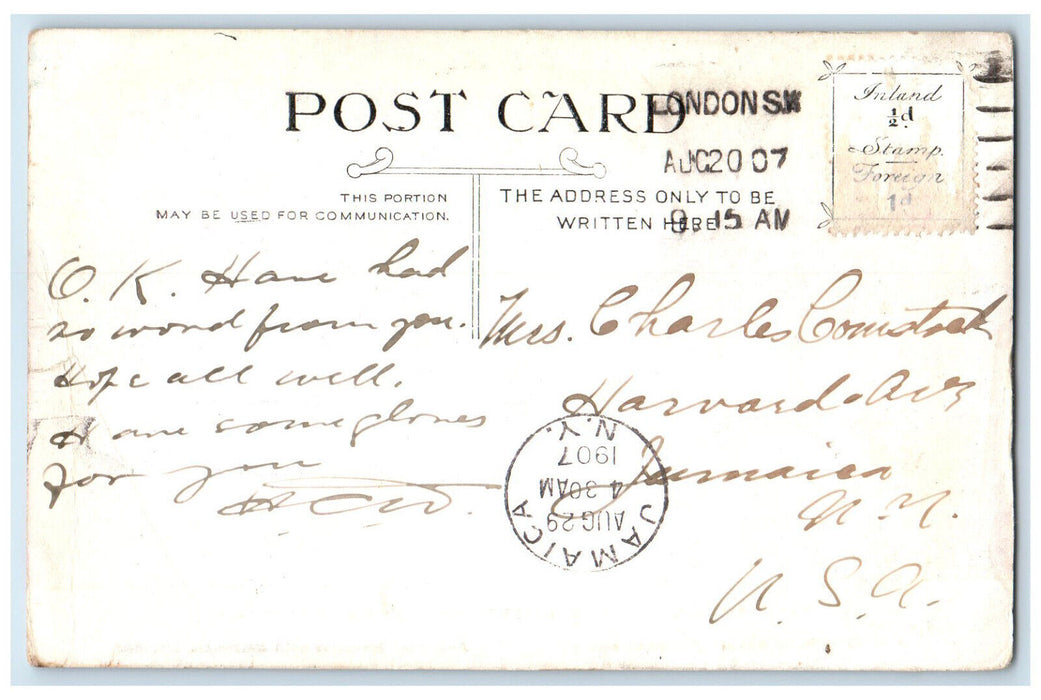 POST CARD
LONDON S.W
AUG 20 07
8. 15 AM
Inland
½d
Stamp.
Foreign
1d
THIS PORTION
MAY BE USED FOR COMMUNICATION.
THE ADDRESS ONLY TO BE
WRITTEN HERE
O. K. Have had
no word from you.
Hope all well.
Have some gloves
for you
Mrs. Charles Comstock
Harvard Ave
Jamaica
N. Y.
U. S. A.
JAMAICA
AUG 29
4 30 AM
1907
N.Y.